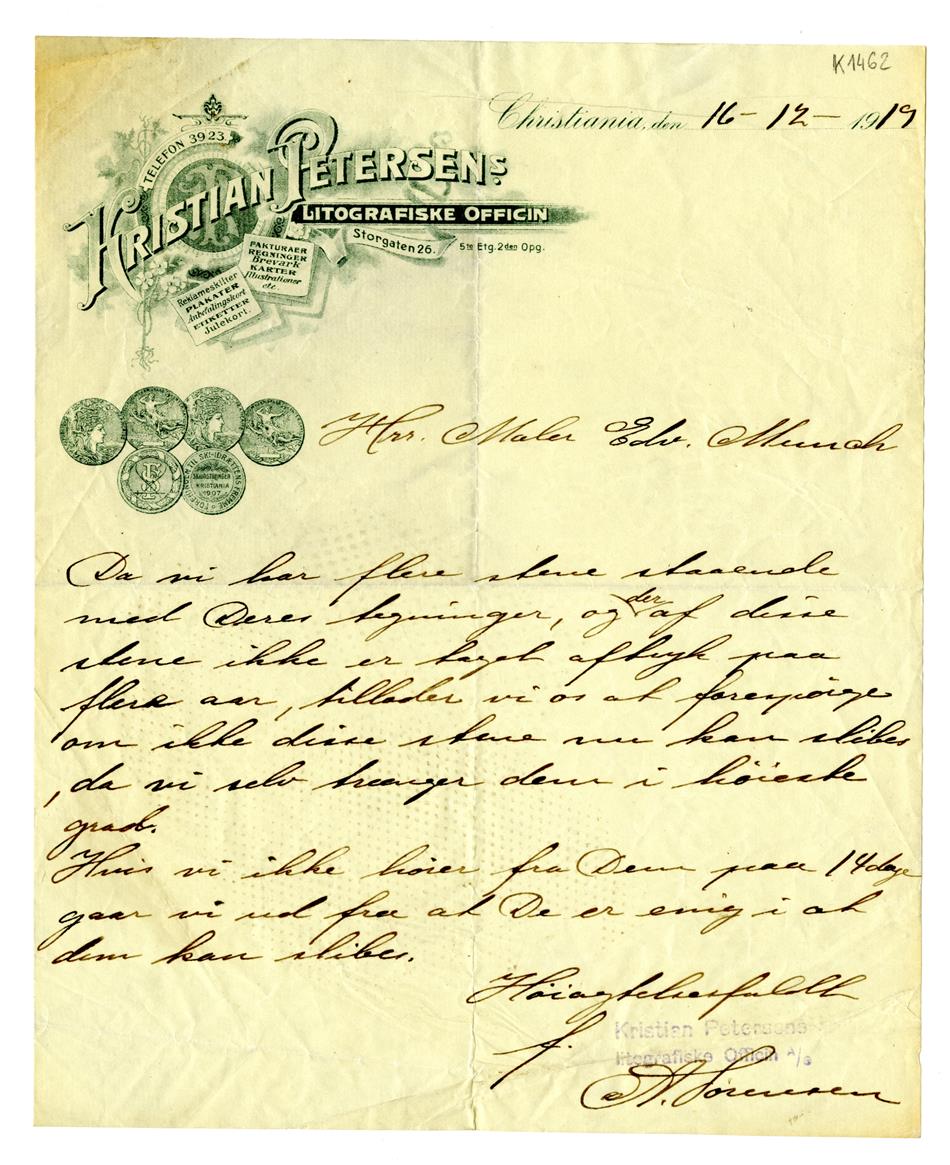 K1462
Christiania, den 16-12-1919
TELEFON 3923.
KRISTIAN PETERSENS
LITOGRAFISKE OFFICIN
Storgaten 26. 5te Etg. 2den Opg.
FAKTURAER
REGNINGER
Brevark
KARTER
Illustrationer
etc.
Reklameskilter
PLAKATER
Anbefalingskort
ETIKETTER
Julekort.
Hrr. Maler Edv. Munch
TIL SKI-IDRÆTTENS FREMME FORENINGEN
KRISTIANIA
1907
Da vi har flere stene staaende
med Deres tegninger, og der af disse
stene ikke er taget aftryk paa
flere aar, tillader vi os at forespørge
om ikke disse stene nu kan slibes
, da vi selv trænger dem i høieste
grad.
Hvis vi ikke hører fra Dem paa 14 dage
gaar vi ud fra at De er enig i at
dem kan slibes.
Høiagtelsesfuldt
f. Kristian Petersens
litografiske Officin A/S
A. Sørensen